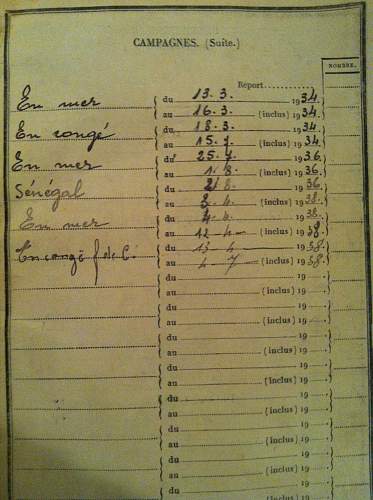 CAMPAGNES. (Suite.)
NOMBRE.
Report
En mer du 13. 3. 1934.
au 16. 3. (inclus) 1934.
En congé du 18. 3. 1934.
au 15. 7. (inclus) 1934
En mer du 25. 7. 1936.
au 1. 8. (inclus) 1936.
Sénégal du 2 8. 1936.
au 3. 4. (inclus) 1938.
En mer du 4. 4. 1938.
au 12 4 (inclus) 1938.
En congé f de C. du 13 4 1938.
au 4 7 (inclus) 1938.
du 19
au (inclus) 19
du 19
au (inclus) 19
du 19
au (inclus) 19
du 19
au (inclus) 19
du 19
au (inclus) 19
du 19
au (inclus) 19
du 19
au (inclus) 19
du 19
au (inclus) 19